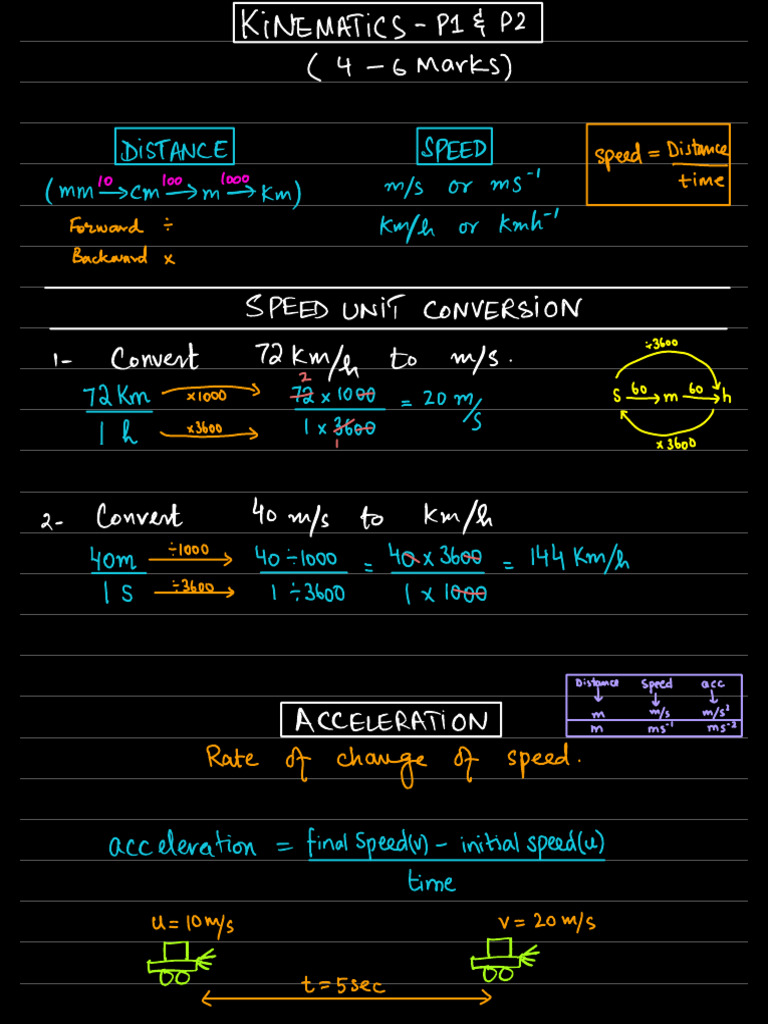 KINEMATICS - P1 & P2
( 4 - 6 Marks)
DISTANCE
(mm →10 cm →100 m →1000 Km)
Forward ÷
Backward ×
SPEED
m/s or ms⁻¹
Km/h or Kmh⁻¹
Speed = Distance / time
SPEED UNIT CONVERSION
1- Convert 72 Km/h to m/s.
72 Km / 1 h ×1000 → ×3600 → 72 × 1000 / 1 × 3600 = 20 m/s
2
1
÷3600
s 60→ m 60→ h
×3600
2- Convert 40 m/s to Km/h
40m / 1 s ÷1000 → ÷3600 → 40 ÷ 1000 / 1 ÷ 3600 = 40 × 3600 / 1 × 1000 = 144 Km/h
Distance Speed acc
↓ ↓ ↓
m m/s m/s²
m ms⁻¹ ms⁻²
ACCELERATION
Rate of change of speed.
acceleration = final speed(v) - initial speed(u) / time
u = 10 m/s
v = 20 m/s
t = 5 sec